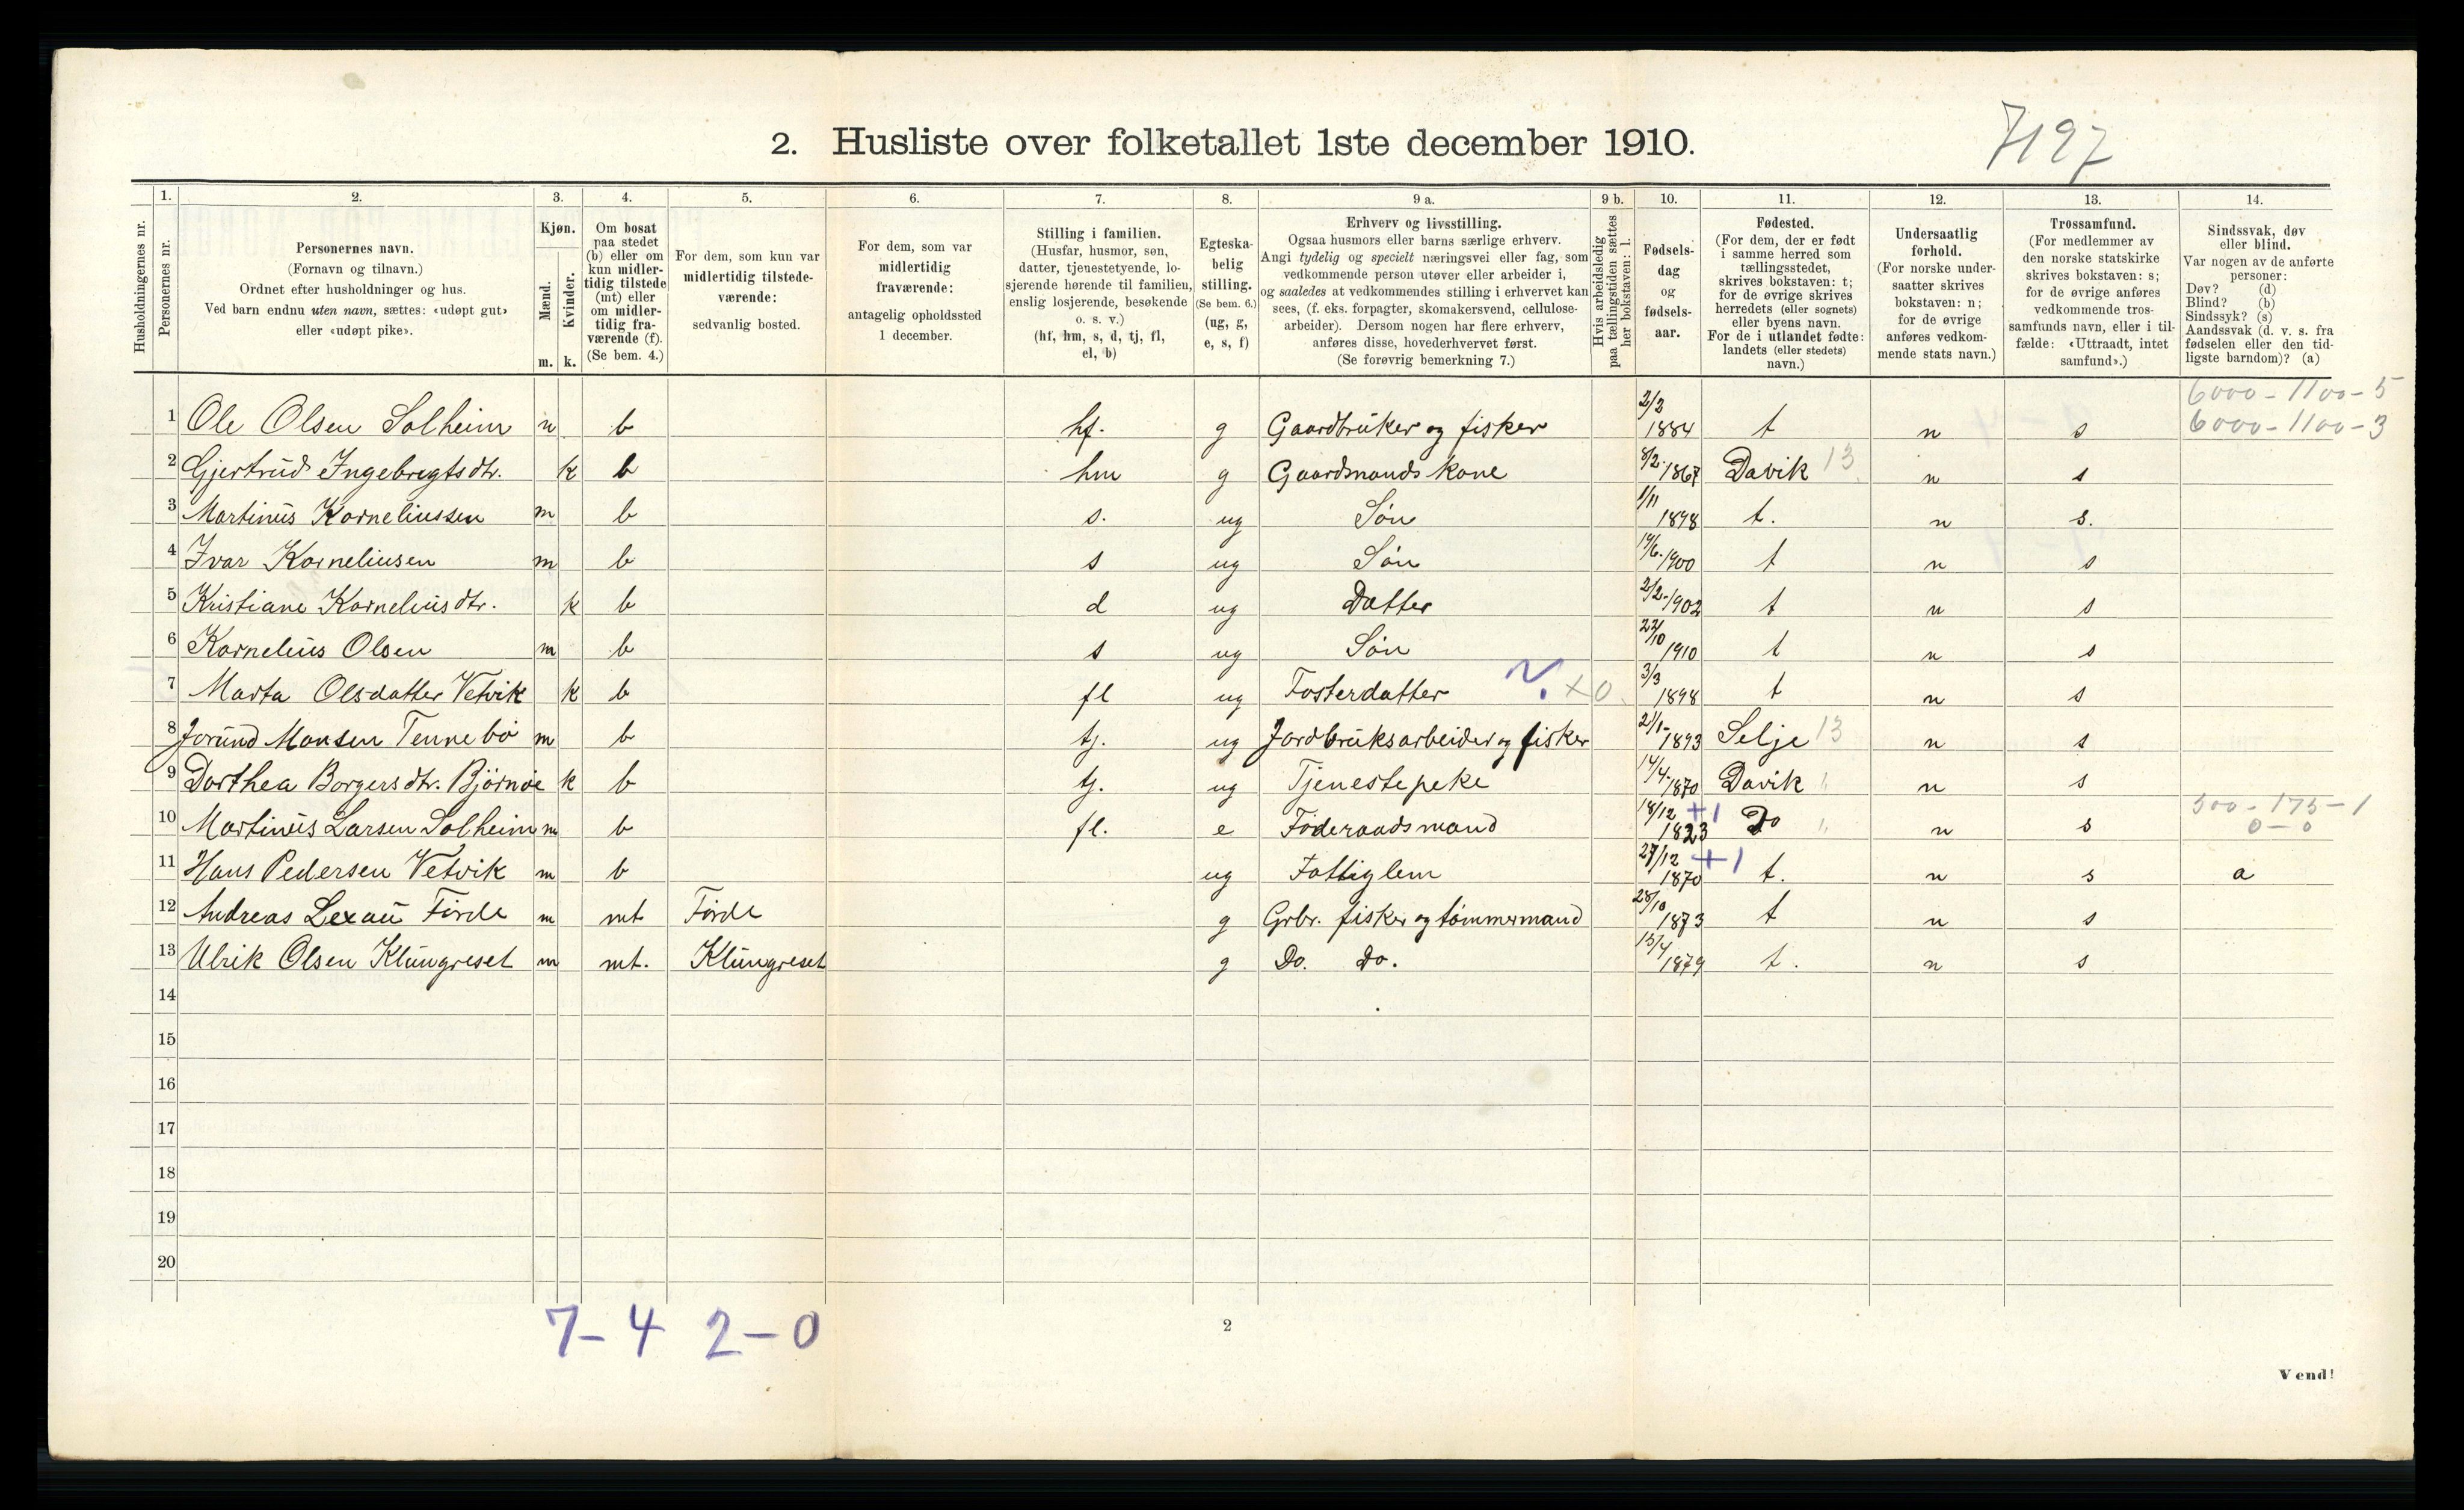 2. Husliste over folketallet 1ste december 1910.
7197
1. 2. 3. 4. 5. 6. 7. 8. 9 a. 9 b. 10. 11. 12. 13. 14.
Husholdningernes nr.
Personernes nr.
Personernes navn.
(Fornavn og tilnavn.)
Ordnet efter husholdninger og hus.
Ved barn endnu uten navn, sættes: «udøpt gut»
eller «udøpt pike».
Kjøn.
Mænd.
Kvinder.
m. k.
Om bosat
paa stedet
(b) eller om
kun midler-
tidig tilstede
(mt) eller
om midler-
tidig fra-
værende (f).
(Se bem. 4.)
For dem, som kun var
midlertidig tilstede-
værende:
sedvanlig bosted.
For dem, som var
midlertidig
fraværende:
antagelig opholdssted
1 december.
Stilling i familien.
(Husfar, husmor, søn,
datter, tjenestetyende, lo-
sjerende hørende til familien,
enslig losjerende, besøkende
o. s. v.)
(hf, hm, s, d, tj, fl,
el, b)
Egteska-
belig
stilling.
(Se bem. 6.)
(ug, g,
e, s, f)
Erhverv og livsstilling.
Ogsaa husmors eller barns særlige erhverv.
Angi tydelig og specielt næringsvei eller fag, som
vedkommende person utøver eller arbeider i,
og saaledes at vedkommendes stilling i erhvervet kan
sees, (f. eks. forpagter, skomakersvend, cellulose-
arbeider). Dersom nogen har flere erhverv,
anføres disse, hovederhvervet først.
(Se forøvrig bemerkning 7.)
Hvis arbeidsledig
paa tællingstiden sættes
her bokstaven: l.
Fødsels-
dag
og
fødsels-
aar.
Fødested.
(For dem, der er født
i samme herred som
tællingsstedet,
skrives bokstaven: t;
for de øvrige skrives
herredets (eller sognets)
eller byens navn.
For de i utlandet fødte:
landets (eller stedets)
navn.)
Undersaatlig
forhold.
(For norske under-
saatter skrives
bokstaven: n;
for de øvrige
anføres vedkom-
mende stats navn.)
Trossamfund.
(For medlemmer av
den norske statskirke
skrives bokstaven: s;
for de øvrige anføres
vedkommende tros-
samfunds navn, eller i til-
fælde: «Uttraadt, intet
samfund».)
Sindssvak, døv
eller blind.
Var nogen av de anførte
personer:
Døv? (d)
Blind? (b)
Sindssyk? (s)
Aandssvak (d. v. s. fra
fødselen eller den tid-
ligste barndom)? (a)
6000-1100-5
1 Ole Olsen Solheim m b hf. g Gaardbruker og fisker 2/2 1884 t n s 6000-1100-3
2 Gjertrud Ingebregtsdtr. k b hm g Gaardmands kone 8/2-1867 Davik 13 n s
3 Martinus Korneliussen m b s. ug Søn 1/11 1898 t. n s.
4 Ivar Korneliusen m b s ug Søn 14/6-1900 t n s
5 Kristiane Korneliusdtr. k b d ug Datter 2/2-1902 t n s
6 Kornelius Olsen m b s ug Søn 22/10 1910 t n s
7 Marta Olsdatter Vetvik k b fl ug Fosterdatter x0 3/3 1898 t n s
8 Jorund Monsen Tennebø m b tj. ug Jordbruksarbeider og fisker 21/1-1893 Selje 13 n s
9 Dorthea Borgersdtr. Bjørnøe k b tj. ug Tjenestepeke 14/4-1870 Davik " n s
10 Martinus Larsen Solheim m b fl. e Føderaadsmand 18/12 1823 +1 Do " n s 500-175-1 0-0
11 Hans Pedersen Vetvik m b ug Fattiglem 27/12 1870 +1 t. n s a
12 Andreas Lexau Førde m mt Førde g Grbr. fisker og tømmermand 28/10 1873 t n s
13 Ulrik Olsen Klungreset m mt. Klungreset g Do. Do. 13/4 1879 t. n s
14
15
16
17
18
19
20
7-4 2-0
2
Vend!